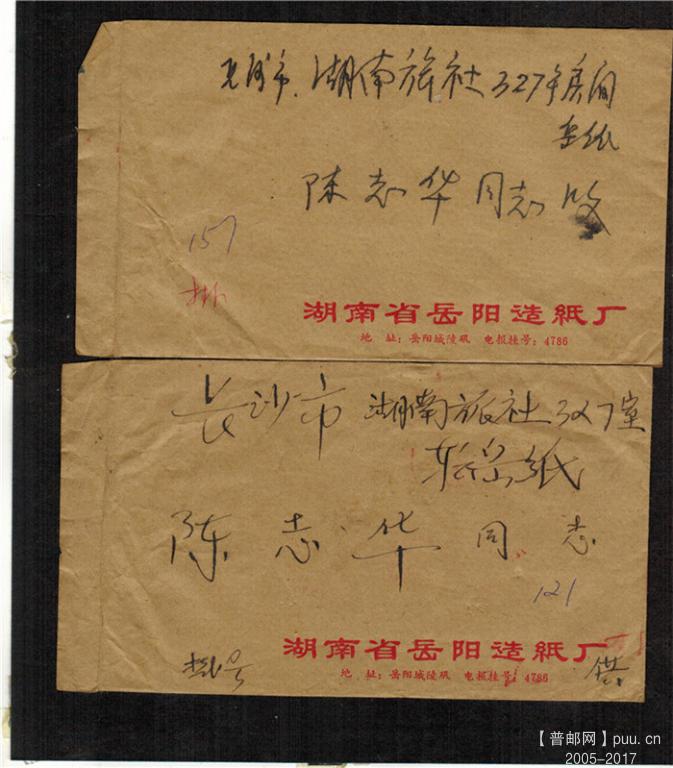 长沙市、湖南旅社327号房间
岳纸
陈志华同志收
157
挂
湖南省岳阳造纸厂
地 址:岳阳城陵矶 电报挂号:4786
长沙市 湖南旅社327室
转岳纸
陈志华同志
121
湖南省岳阳造纸厂
挂号
供
地 址:岳阳城陵矶 电报挂号:4786
【普邮网】puu.cn
2005-2017